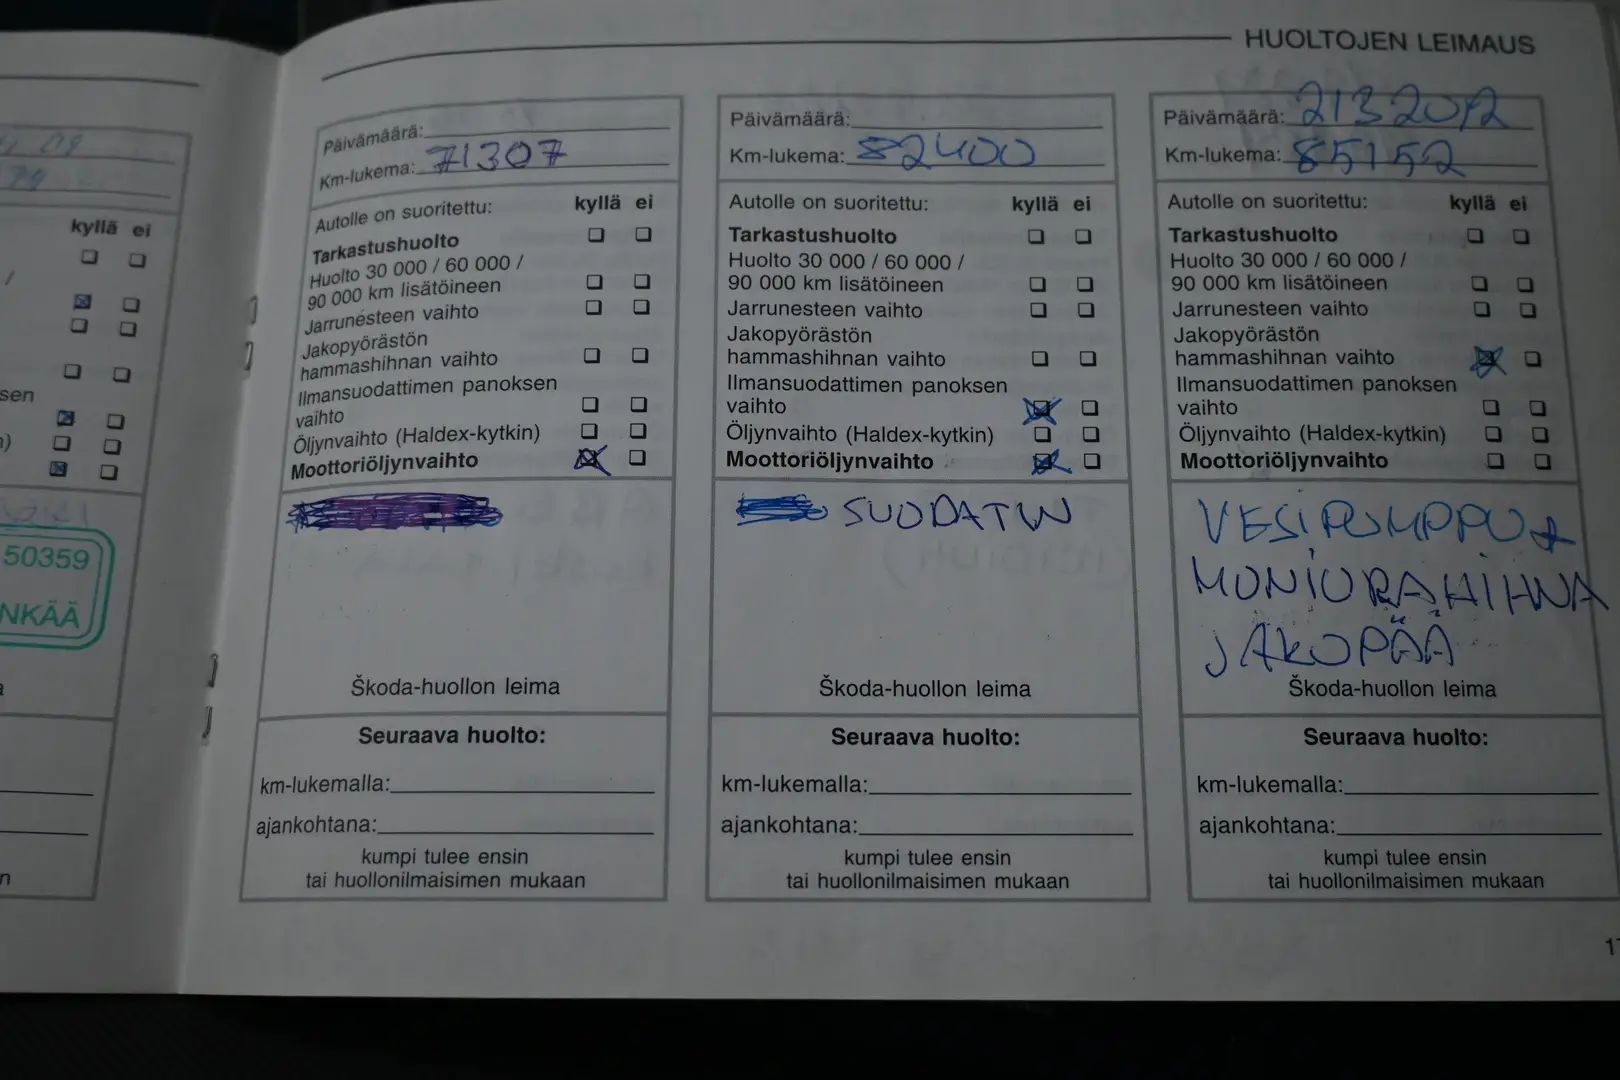 HUOLTOJEN LEIMAUS
kyllä ei
sen
50359
NKÄÄ
Päivämäärä:
Km-lukema: 71307
Autolle on suoritettu: kyllä ei
Tarkastushuolto
Huolto 30 000 / 60 000 /
90 000 km lisätöineen
Jarrunesteen vaihto
Jakopyörästön
hammashihnan vaihto
Ilmansuodattimen panoksen
vaihto
Öljynvaihto (Haldex-kytkin)
Moottoriöljynvaihto
Škoda-huollon leima
Seuraava huolto:
km-lukemalla:
ajankohtana:
kumpi tulee ensin
tai huollonilmaisimen mukaan
Päivämäärä:
Km-lukema: 82400
Autolle on suoritettu: kyllä ei
Tarkastushuolto
Huolto 30 000 / 60 000 /
90 000 km lisätöineen
Jarrunesteen vaihto
Jakopyörästön
hammashihnan vaihto
Ilmansuodattimen panoksen
vaihto
Öljynvaihto (Haldex-kytkin)
Moottoriöljynvaihto
SUODATIN
Škoda-huollon leima
Seuraava huolto:
km-lukemalla:
ajankohtana:
kumpi tulee ensin
tai huollonilmaisimen mukaan
Päivämäärä: 2132012
Km-lukema: 85152
Autolle on suoritettu: kyllä ei
Tarkastushuolto
Huolto 30 000 / 60 000 /
90 000 km lisätöineen
Jarrunesteen vaihto
Jakopyörästön
hammashihnan vaihto
Ilmansuodattimen panoksen
vaihto
Öljynvaihto (Haldex-kytkin)
Moottoriöljynvaihto
VESIPUMPPU &
MONIURAHIHNA
JAKOPÄÄ
Škoda-huollon leima
Seuraava huolto:
km-lukemalla:
ajankohtana:
kumpi tulee ensin
tai huollonilmaisimen mukaan